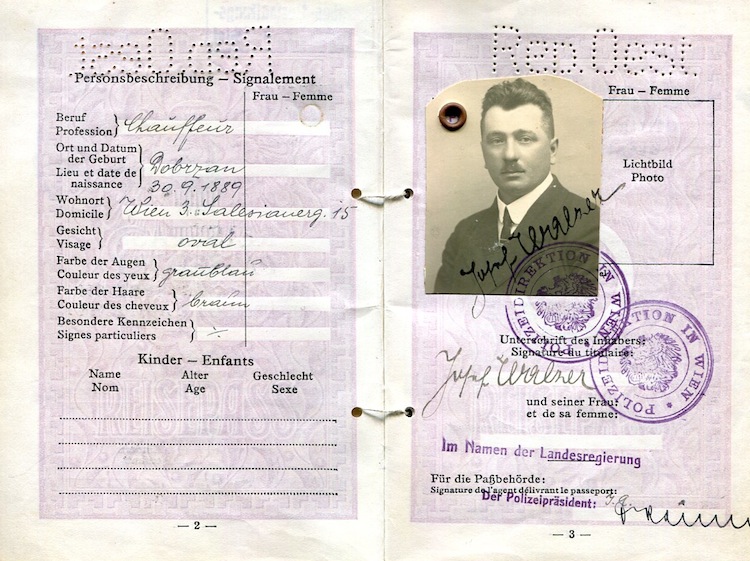 Rep. Oest
Personsbeschreibung – Signalement
Frau – Femme
Beruf
Profession
Chauffeur
Ort und Datum
der Geburt
Lieu et date de
naissance
Dobrzan
30.9.1889
Wohnort
Domicile
Wien 3. Salesianerg. 15
Gesicht
Visage
oval
Farbe der Augen
Couleur des yeux
graublau
Farbe der Haare
Couleur des cheveux
braun
Besondere Kennzeichen
Signes particuliers
÷
Kinder – Enfants
Name Alter Geschlecht
Nom Age Sexe
— 2 —
Rep. Oest
Frau – Femme
Lichtbild
Photo
Josef Walzer
POLIZEIDIREKTION IN WIEN
POLIZEIDIREKTION IN WIEN
Unterschrift des Inhabers:
Signature du titulaire:
Josef Walzer
und seiner Frau:
et de sa femme:
Im Namen der Landesregierung
Für die Paßbehörde:
Signature de l'agent délivrant le passeport:
Der Polizeipräsident:
— 3 —